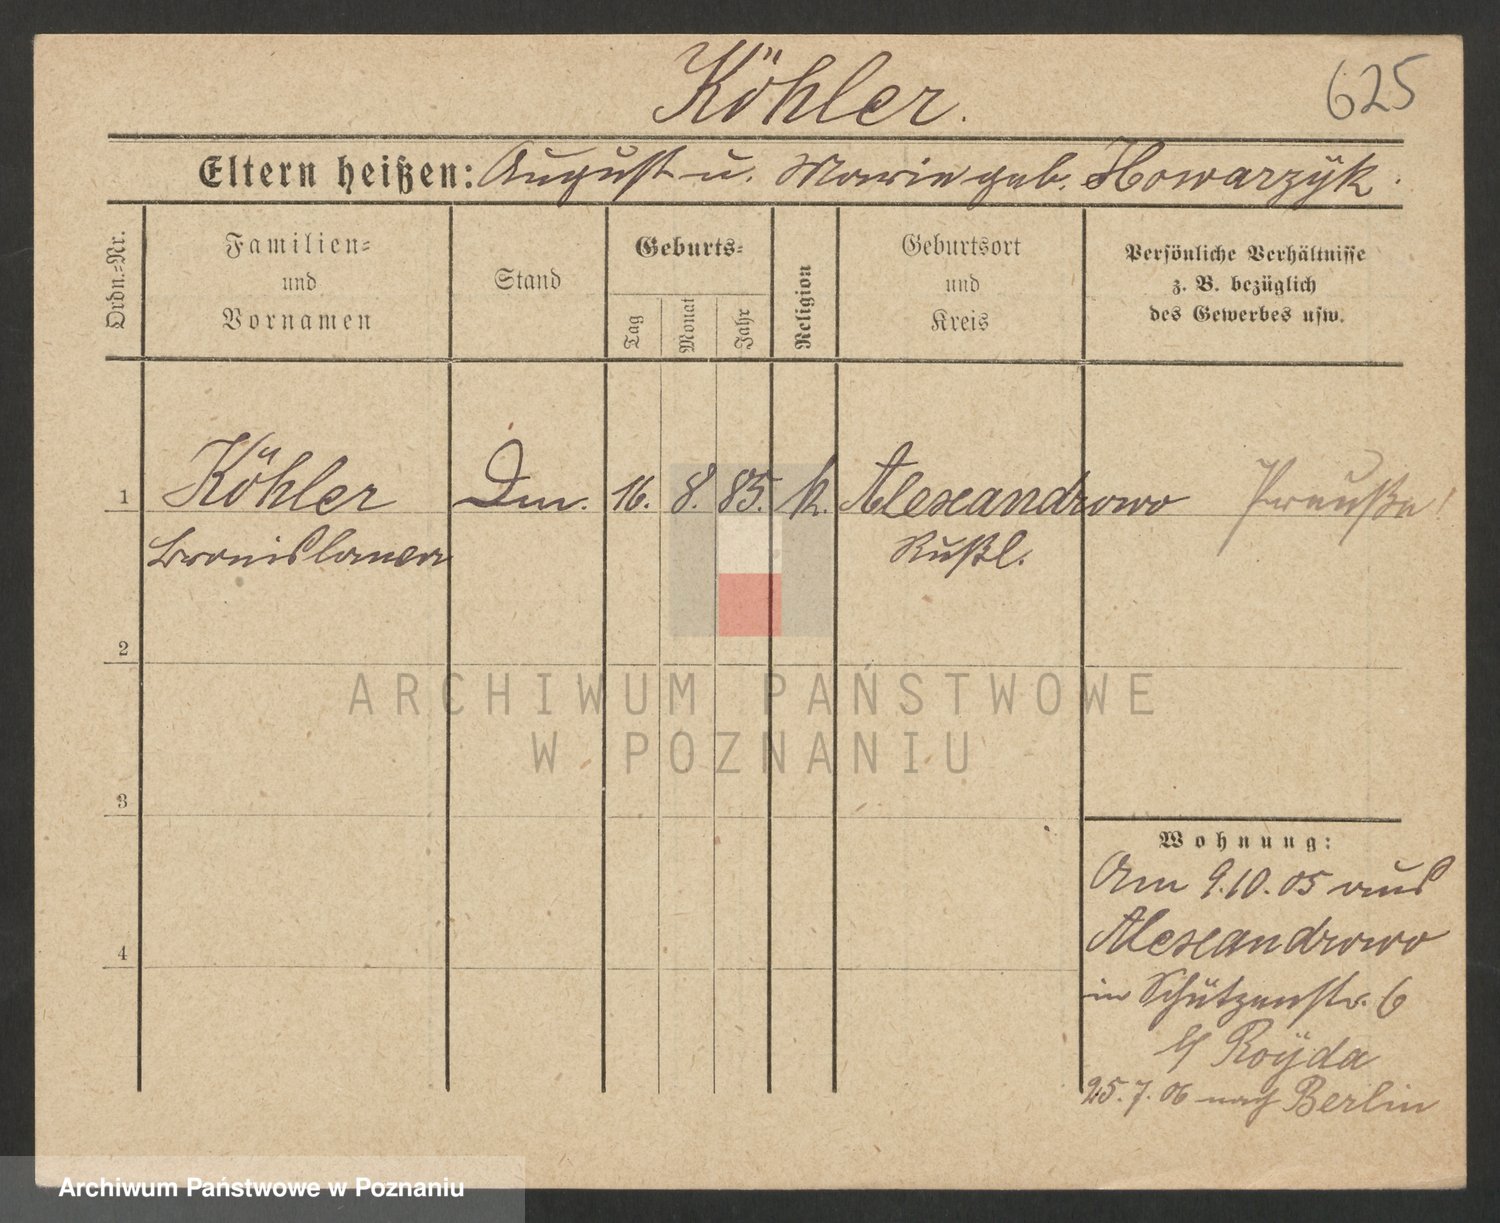 Köhler.
625
Eltern heißen: August u. Marie geb. Howarzÿk.
Ordn.-Nr.
Familien- und Vornamen
Stand
Geburts-
Tag
Monat
Jahr
Religion
Geburtsort und Kreis
Persönliche Verhältnisse z. B. bezüglich des Gewerbes usw.
1 Köhler 16. 8. 85. k. Alexandrowo Preuße
Bronislawa Rußl.
2
3
4
Wohnung:
Am 9.10.05 aus
Alexandrowo
in Schützenstr. 6
b/ Roÿda
25.7.06 nach Berlin
ARCHIWUM PAŃSTWOWE
W POZNANIU
Archiwum Państwowe w Poznaniu